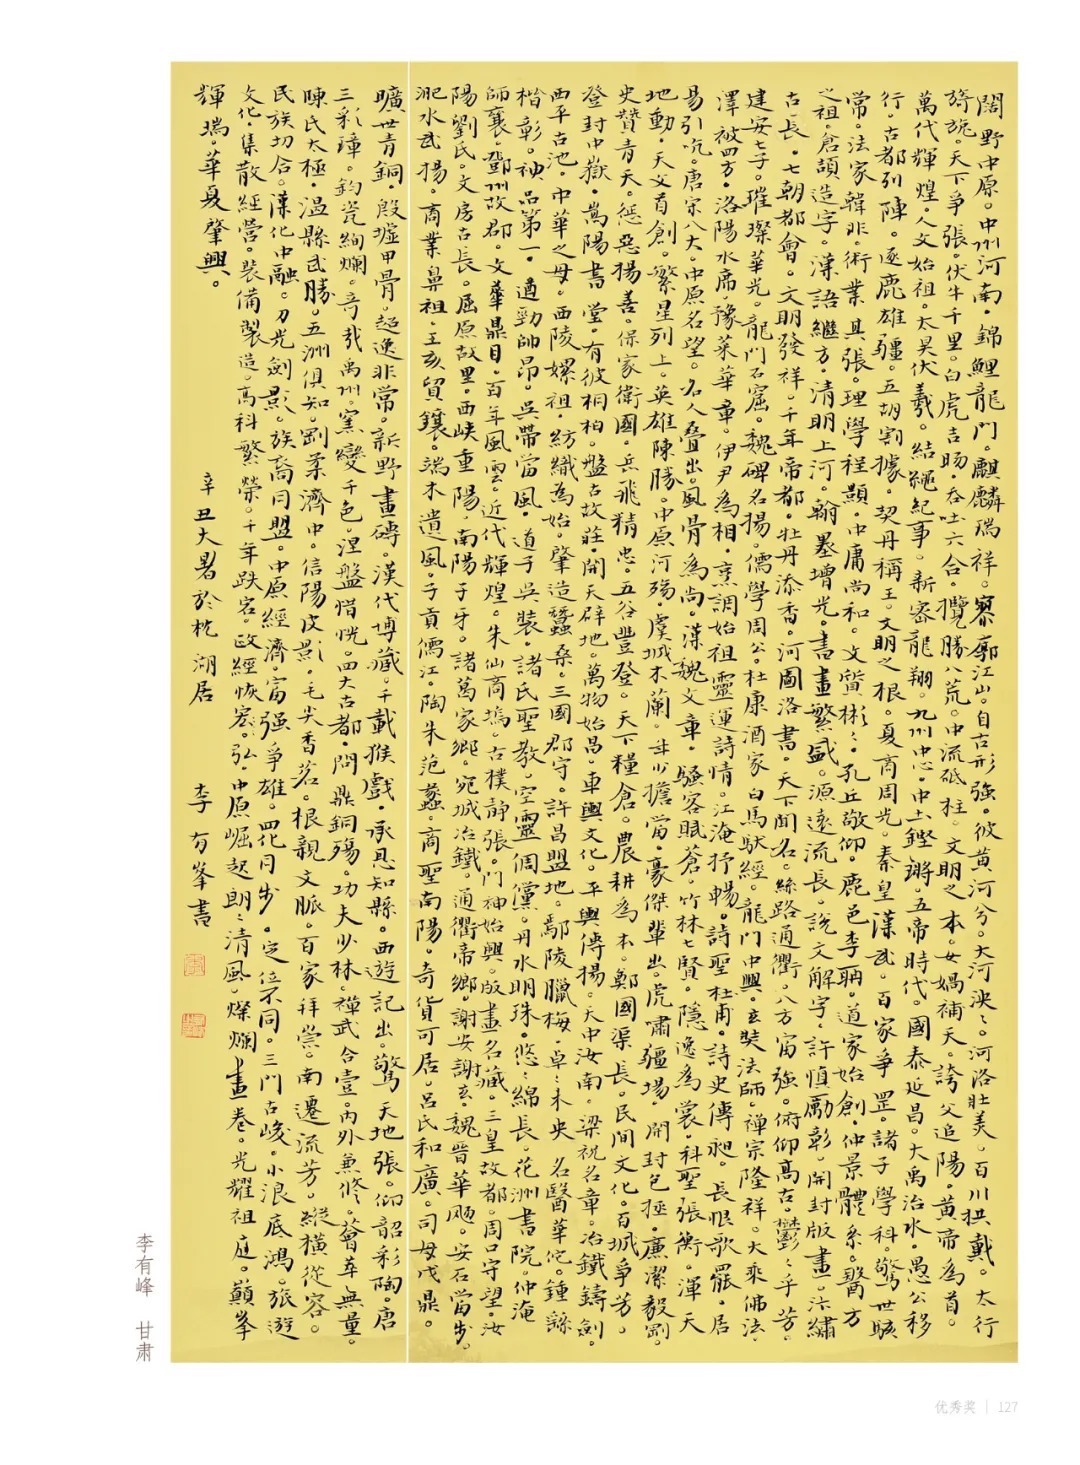 闊野中原。中州河南。錦鯉龍門。麒麟瑞祥。寥廓江山。自古形強。彼黃河兮。大河泱々。河洛壯美。百川拱戴。太行
旖旎。天下爭張。伏牛千里。白虎吉暘。吞吐六合。攬勝八荒。中流砥柱。文明之本。女媧補天。誇父追陽。黃帝為首。
萬代輝煌。人文始祖。太昊伏羲。結繩紀事。新密龍翔。九州中心。中土鏗鏘。五帝時代。國泰延昌。大禹治水。愚公移
行。古都列陣。逐鹿雄疆。五胡割據。契丹稱王。文明之根。夏商周光。秦皇漢武。百家爭罡。諸子學科。驚世駭
常。法家韓非。術業具張。理學程顥。中庸尚和。文質彬々。孔丘敬仰。鹿邑李聃。道家始創。仲景體系。醫方
之祖。倉頡造字。漢語繼方。清明上河。翰墨增光。書畫繁盛。源遠流長。說文解字。許慎勵彰。開封版畫。汴繡
古長。七朝都會。文明發祥。千年帝都。牡丹添香。河圖洛書。天下聞名。絲路通衢。八方富強。俯仰高古。鬱々乎芳。
建安七子。璀璨華光。龍門石窟。魏碑名揚。儒學周公。杜康酒家。白馬馱經。龍門中興。玄奘法師。禪宗隆祥。大乘佛法。
澤被四方。洛陽水席。豫菜華章。伊尹為相。烹調始祖。靈運詩情。江淹抒暢。詩聖杜甫。詩史傳昶。長恨歌罷。居
易引吭。唐宋八大。中原名望。名人疊出。風骨為尚。漢魏文章。騷客賦蒼。竹林七賢。隱逸為裳。科聖張衡。渾天
地動。天文首創。繁星列上。英雄陳勝。中原河殤。虞城木蘭。年少擔當。豪傑輩出。虎嘯疆場。開封包拯。廉潔毅剛。
史贊青天。懲惡揚善。保家衛國。岳飛精忠。五谷豐登。天下糧倉。農耕為本。鄭國渠長。民間文化。百城爭芳。
登封中嶽。嵩陽書堂。有彼相柏。盤古故莊。開天辟地。萬物始昌。車輿文化。平輿傳揚。天中汝南。梁祝名章。冶鐵鑄劍。
西平古池。中華之母。西陵嫘祖。紡織為始。肇造蠶桑。三國郡守。許昌盟地。鄢陵臘梅。卓々未央。名醫華佗。鍾繇
楷彰。神品第一。遒勁帥昂。吳帶當風。道子吳裝。諸氏聖教。空靈倜儻。丹水明珠。悠々綿長。花洲書院。仲淹
師襄。鄧州故郡。文華鼎目。百年風雲。近代輝煌。朱仙商塢。古樸靜張。門神始興。版畫名藏。三皇故都。周口守望。汝
陽劉氏。文房古長。屈原故里。西峽重陽。南陽子牙。諸葛家鄉。宛城冶鐵。通衢帝鄉。謝安謝玄。魏晉華颺。安石當步。
淝水武揚。商業鼻祖。王亥貿鑲。端木遺風。子貢儒江。陶朱范蠡。商聖南陽。奇貨可居。呂氏和廣。司母戊鼎。
曠世青銅。殷墟甲骨。超逸非常。新野畫磚。漢代博藏。千載猴戲。承恩知縣。西遊記出。驚天地張。仰韶彩陶。唐
三彩璋。鈞瓷絢爛。奇哉禹州。窯變千色。涅盤惜恍。四大古都。問鼎銅殤。功夫少林。禪武合壹。內外兼修。薈萃無量。
陳氏太極。溫縣武勝。五洲俱知。剛柔濟中。信陽皮影。毛尖香茗。根親文脈。百家拜崇。南遷流芳。縱橫從容。
民族切合。漢化中融。刀光劍影。族裔同盟。中原經濟。富強爭雄。四化同步。定位不同。三門古峻。小浪底鴻。旅遊
文化。集散經營。裝備製造。高科繁榮。千年跌宕。政經恢宏。弘々中原。崛起朗々。清風燦爛。畫卷光耀。祖庭巔峯
輝瑞。華夏肇興。
辛丑大暑於枕湖居
李有峯書
李有峰 甘肃
优秀奖 | 127